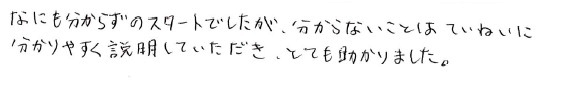 なにも分からずのスタートでしたが、分からないことはていねいに
分かりやすく説明していただき、とても助かりました。